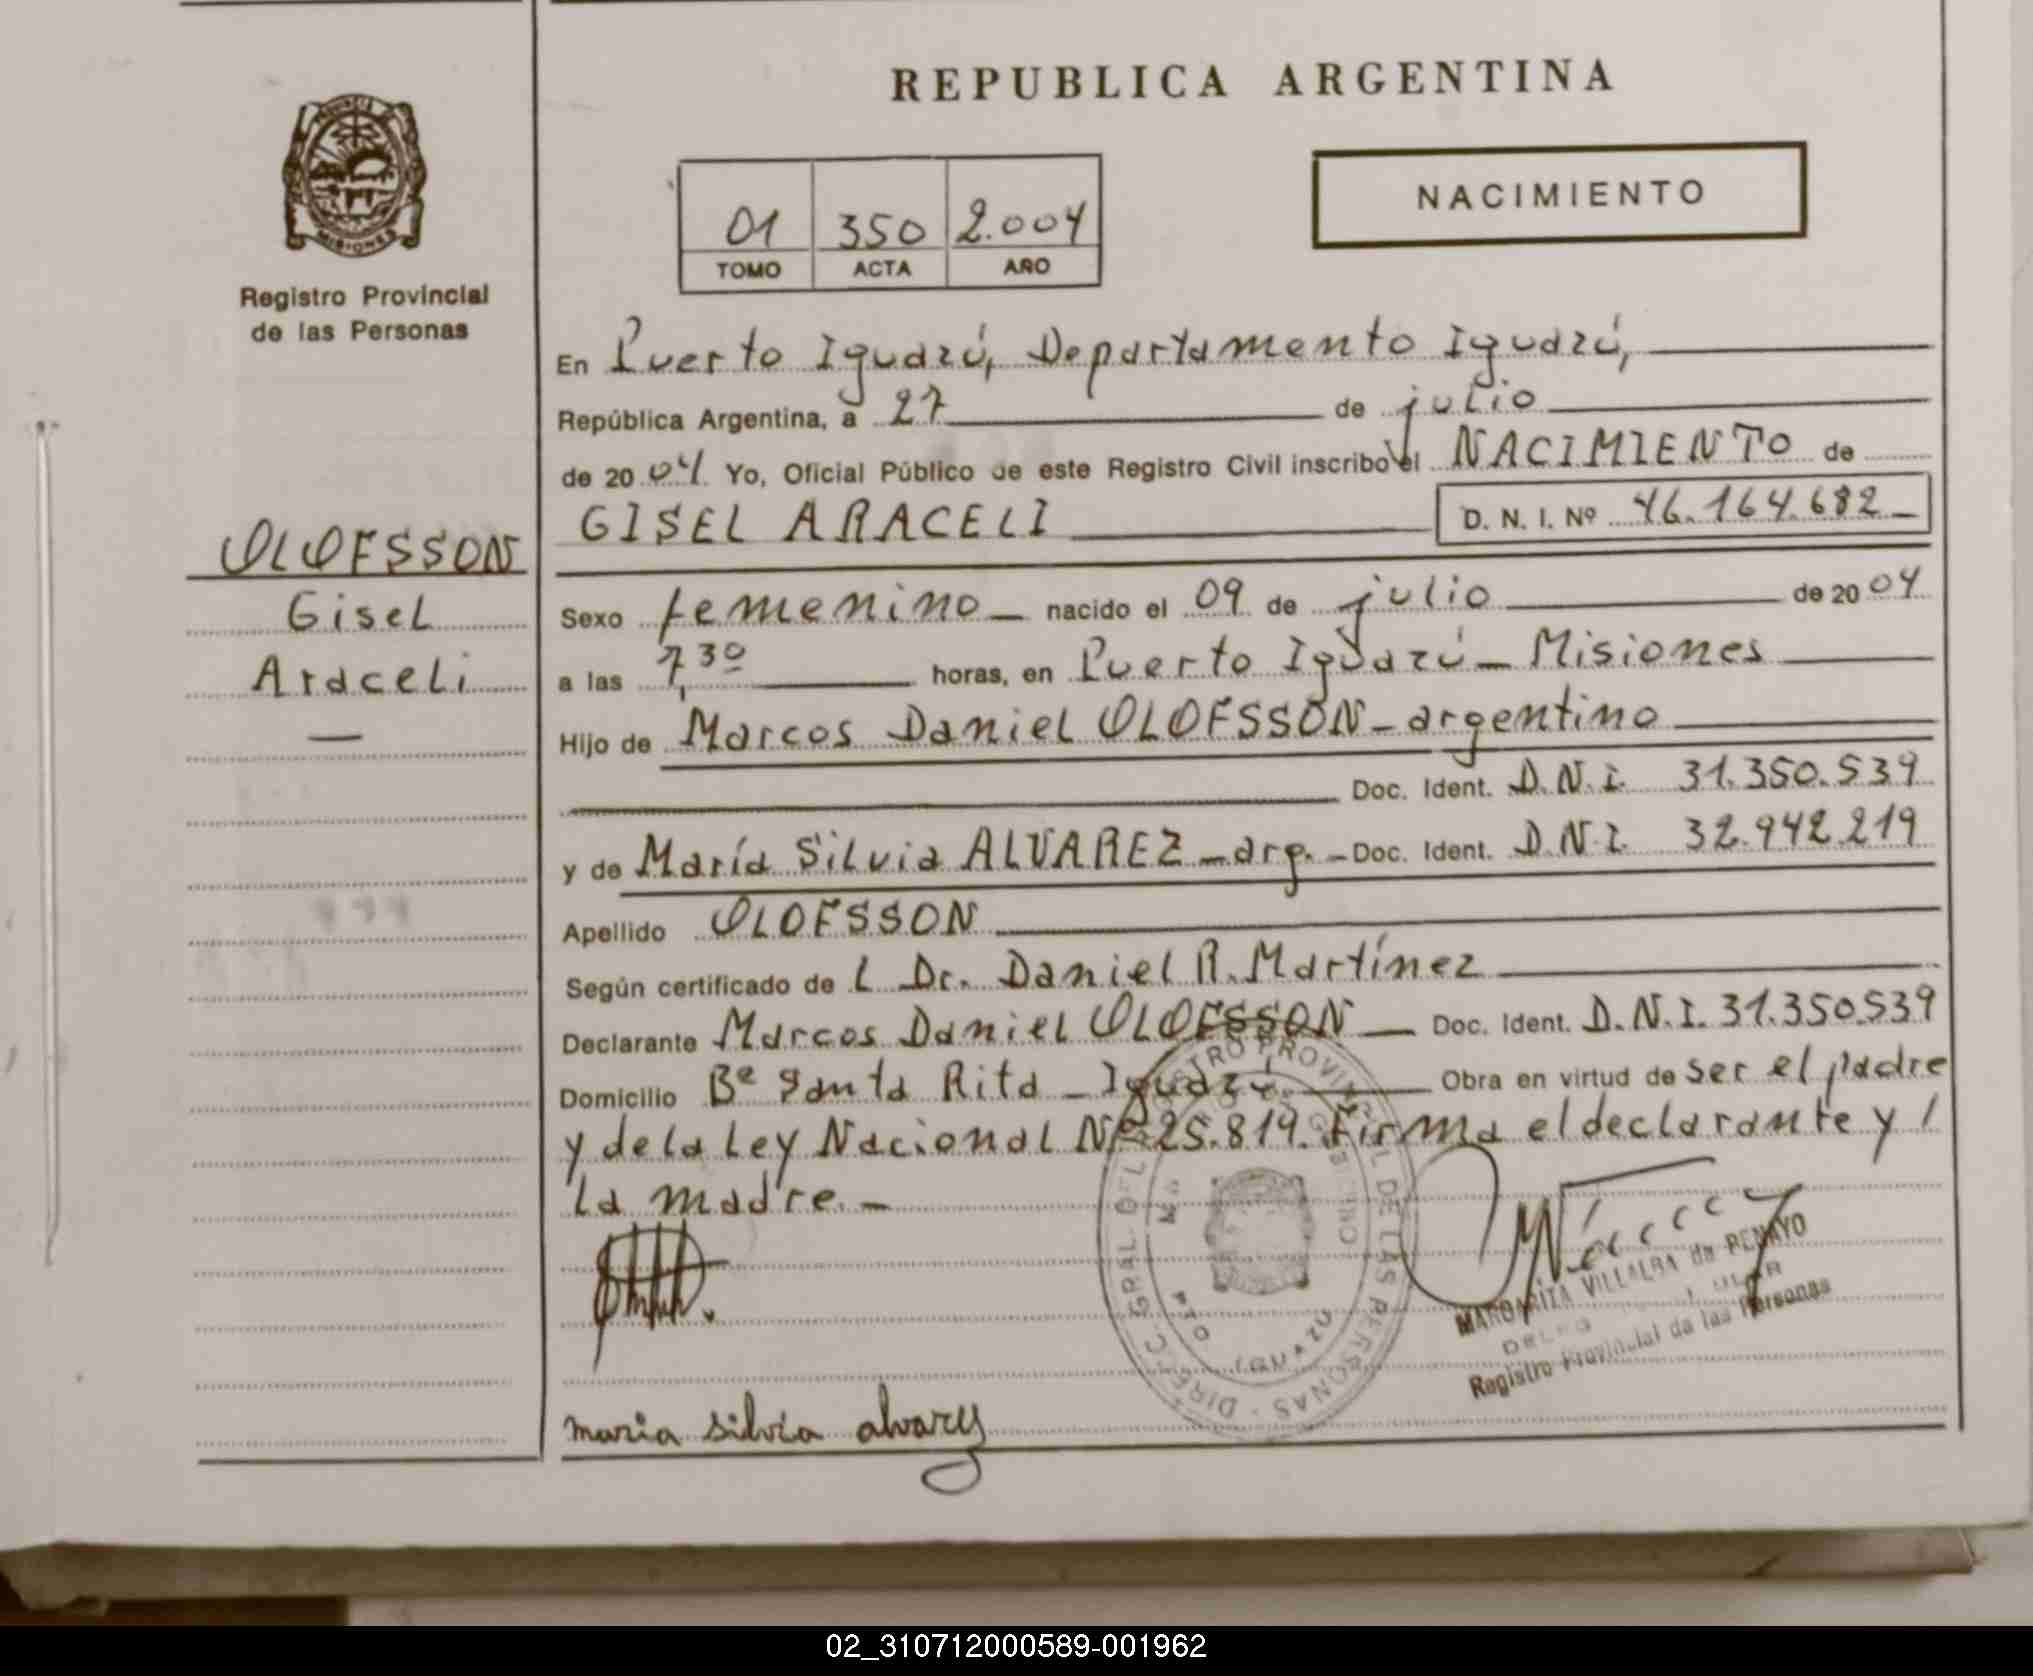 REPUBLICA ARGENTINA
MISIONES
Registro Provincial
de las Personas
01 350 2.004
TOMO ACTA AÑO
NACIMIENTO
En Puerto Iguazú, Departamento Iguazú,
República Argentina, a 27 de julio
de 20 04 Yo, Oficial Público de este Registro Civil inscribo el NACIMIENTO de
GISEL ARACELI D. N. I. Nº 46.164.682
OLOFSSON
Gisel
Araceli
Sexo femenino nacido el 09 de julio de 20 04
a las 7,30 horas, en Puerto Iguazú - Misiones
Hijo de Marcos Daniel OLOFSSON - argentino
Doc. Ident. D.N.I. 31.350.539
y de María Silvia ALVAREZ - arg. - Doc. Ident. D.N.I. 32.942.219
Apellido OLOFSSON
Según certificado de L Dr. Daniel R. Martínez
Declarante Marcos Daniel OLOFSSON Doc. Ident. D.N.I. 31.350.539
Domicilio Bº Santa Rita - Iguazú Obra en virtud de ser el padre
y de la Ley Nacional Nº 25.819. Firma el declarante y /
la madre. -
MARGARITA VILLALBA de PENAYO
Registro Provincial de las Personas
maria silvia alvarez
02_310712000589-001962